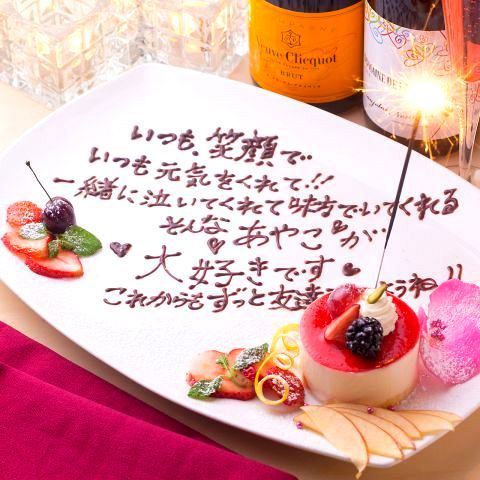 Veuve Clicquot
BRUT
いつも、笑顔で
いつも元気をくれて!!
一緒に泣いてくれて味方でいてくれる
そんな あやこ が…
大好きです
これからもずっと友達